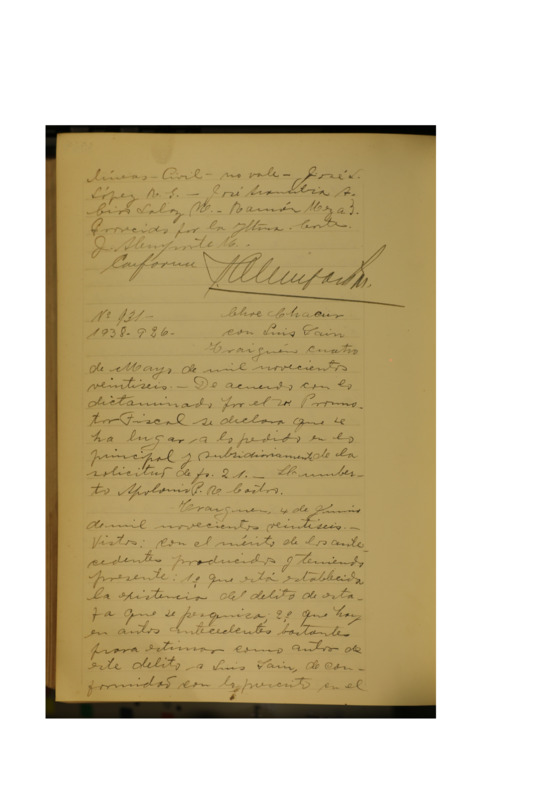 líneas - Civil - no vale - José L.
López R. S. - José
Ramón Meza S.
Proveído por la Iltma. Corte.
J.
Conforme
Nº 921 -
1938-926-
con Luis Sain
Traiguén cuatro
de Mayo de mil novecientos
veintiseis. - De acuerdo con lo
dictaminado por el Sr Promo-
tor Fiscal se declara que
ha lugar a lo pedido en lo
principal y subsidiariamente de la
solicitud de fs. 21. - Humber-
to Apolonio P. R. Castro.
Traiguén, 4 de Junio
de mil novecientos veintiseis. -
Vistos: con el mérito de los ante-
cedentes producidos y teniendo
presente: 1º que está establecida
la existencia del delito de esta-
fa que se pesquisa; 2º que hay
en autos antecedentes bastantes
para estimar como autor de
este delito a Luis Sain, de con-
formidad con lo prescrito en el